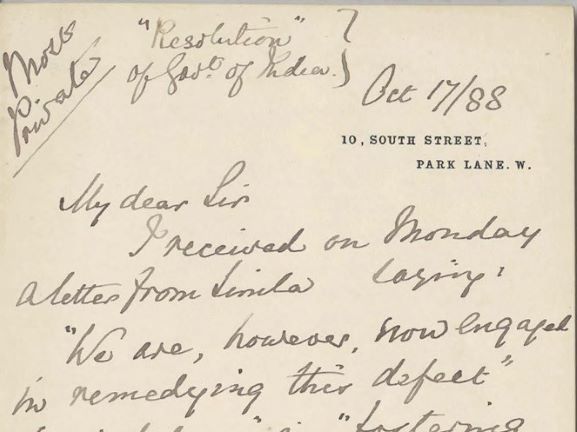 Most
Private
"Resolution"
of Govt. of India.
Oct 17/88
10, SOUTH STREET,
PARK LANE. W.
My dear Sir
I received on Monday
a letter from Simla saying:
"We are, however, now engaged
in remedying this defect"
"fostering